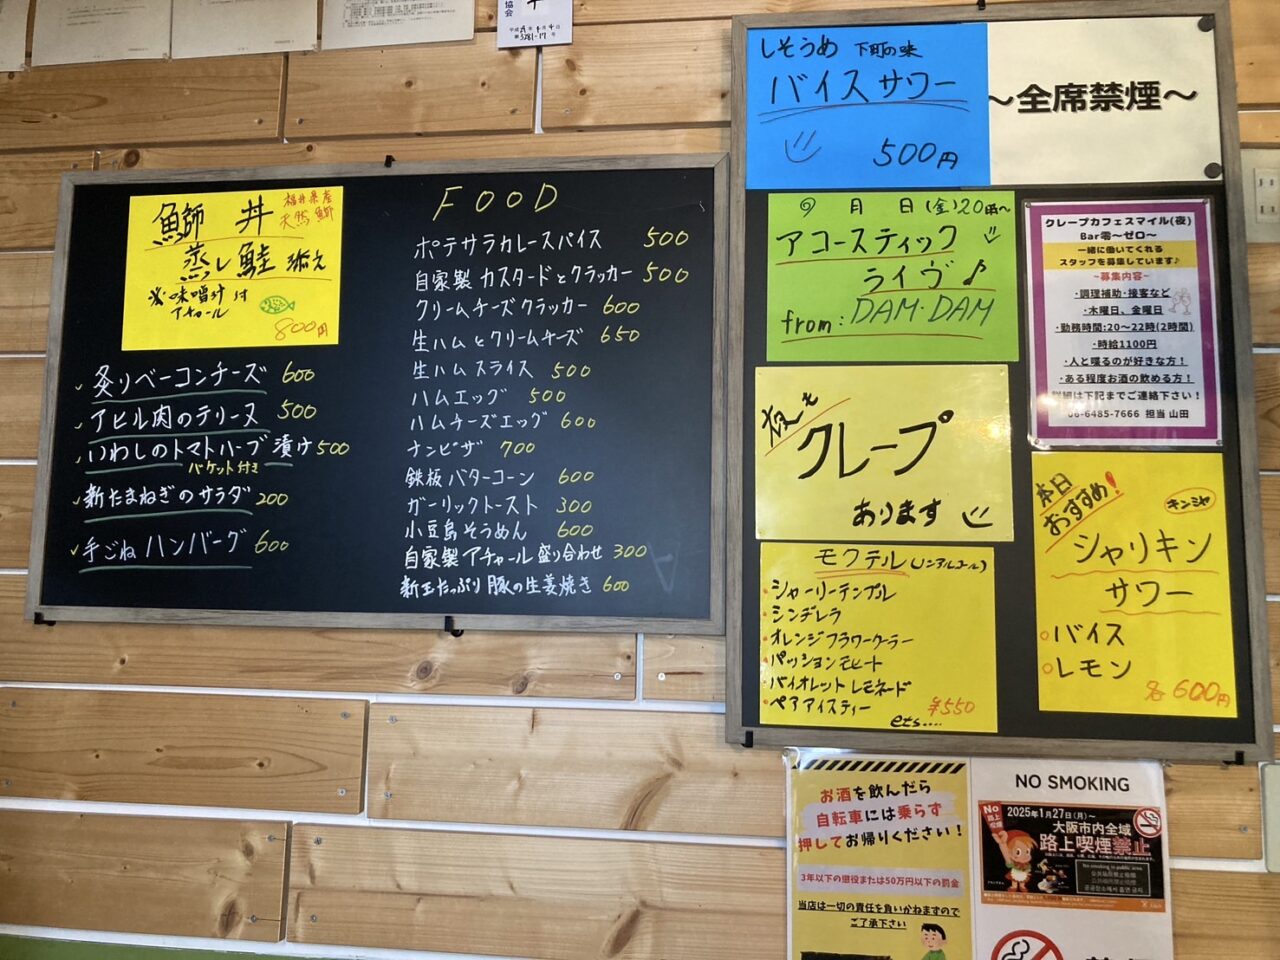 協会
全席禁煙
～全席禁煙～
しそうめ 下町の味
バイスサワー
500円
鰤 丼
福井県産
天然鰤
蒸し鮭 添え
※味噌汁 付
アチャール
800円
炙りベーコンチーズ 600
アヒル肉のテリーヌ 500
いわしのトマトハーブ漬け 500
バケット付き
新たまねぎのサラダ 200
手ごねハンバーグ 600
FOOD
ポテサラカレースパイス 500
自家製カスタードとクラッカー 500
クリームチーズクラッカー 600
生ハムとクリームチーズ 650
生ハムスライス 500
ハムエッグ 500
ハムチーズエッグ 600
ナンピザ 700
鉄板バターコーン 600
ガーリックトースト 300
小豆島そうめん 600
自家製アチャール盛り合わせ 300
新玉たっぷり豚の生姜焼き 600
月 日(金)20時〜
アコースティック
ライヴ♪
from: DAM・DAM
クレープカフェスマイル(夜)
Bar零〜ゼロ〜
一緒に働いてくれる
スタッフを募集しています♪
~募集内容~
・調理補助・接客など
・木曜日、金曜日
・勤務時間:20〜22時(2時間)
・時給1100円
・人と喋るのが好きな方！
・ある程度お酒の飲める方！
詳細は下記までご連絡下さい！
06-6485-7666 担当 山田
夜も
クレープ
あります
モクテル(ノンアルコール)
・シャーリーテンプル
・シンデレラ
・オレンジフラワークーラー
・パッションモヒート
・バイオレットレモネード
・ペアアイスティー
ets....
¥550
本日
おすすめ!
キンミヤ
シャリキン
サワー
○バイス
○レモン
各600円
お酒を飲んだら
自転車には乗らず
押してお帰りください！
3年以下の懲役または50万円以下の罰金
当店は一切の責任を負いかねますので
ご了承下さい
NO SMOKING
No
路上喫煙
2025年1月27日(月)～
大阪市内全域
路上喫煙禁止
No smoking in public area